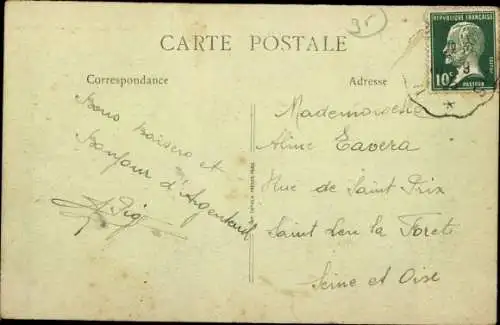 95
CARTE POSTALE
Correspondance
Adresse
REPUBLIQUE FRANÇAISE
10c
POSTES
PASTEUR
Bons baisers et
Bonjour d'Argenteuil
Mademoiselle
Aline Favera
Rue de Saint Prix
Saint Leu la Forêt
Seine et Oise